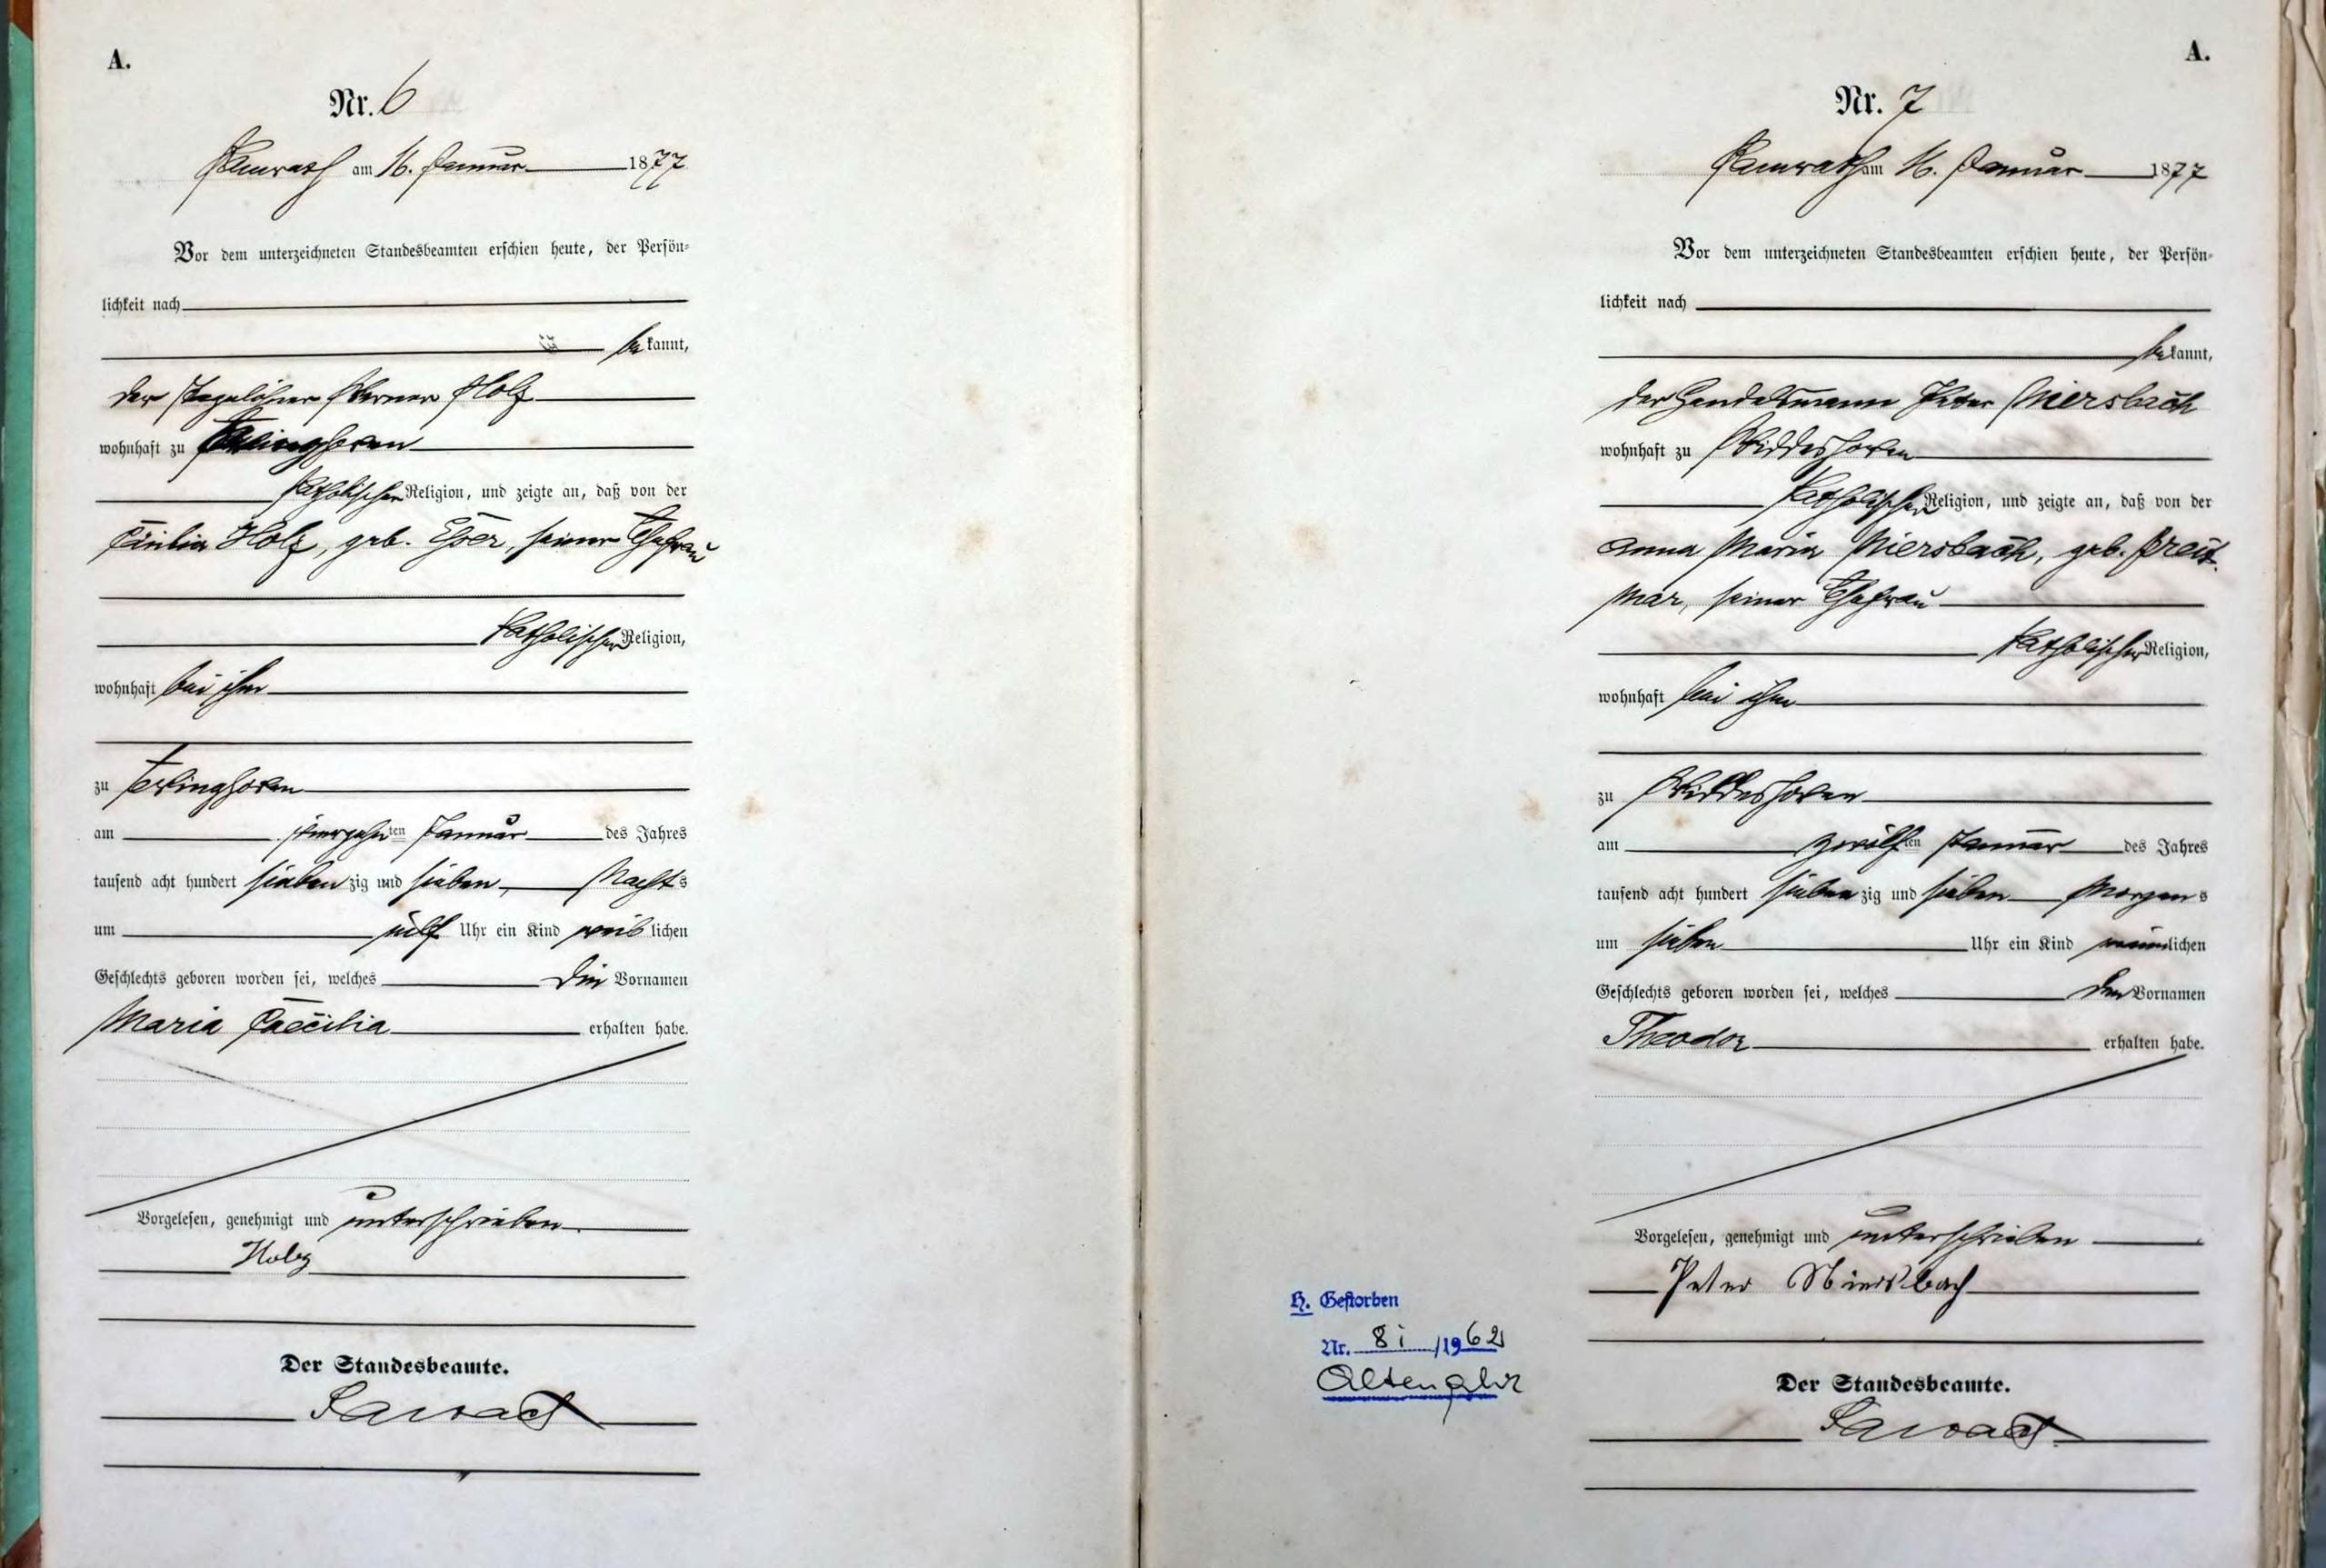 A.
Nr. 6
am 16. Januar 1877
Vor dem unterzeichneten Standesbeamten erschien heute, der Persön-
lichkeit nach
bekannt,
der Tagelöhner Werner Holz
wohnhaft zu
katholischer Religion, und zeigte an, daß von der
Holz, geb. Eßer, seiner Ehefrau
katholischer Religion,
wohnhaft bei ihm
zu Evinghoven
am vierzehnten Januar des Jahres
tausend acht hundert siebenzig und sieben, Nachts
um Uhr ein Kind weiblichen
Geschlechts geboren worden sei, welches die Vornamen
Maria Caecilia erhalten habe.
Vorgelesen, genehmigt und unterschrieben.
Holz
Der Standesbeamte.
A.
Nr. 7
am 16. Januar 1877
Vor dem unterzeichneten Standesbeamten erschien heute, der Persön-
lichkeit nach
bekannt,
der Handelsmann Peter Miersbach
wohnhaft zu Widdeshoven
katholischer Religion, und zeigte an, daß von der
Anna Maria Miersbach, geb.
seiner Ehefrau
katholischer Religion,
wohnhaft bei ihm
zu Widdeshoven
am zwölften Januar des Jahres
tausend acht hundert siebenzig und sieben Morgens
um sieben Uhr ein Kind männlichen
Geschlechts geboren worden sei, welches den Vornamen
Theodor erhalten habe.
Vorgelesen, genehmigt und unterschrieben
Peter Miersbach
Der Standesbeamte.
H. Gestorben
Nr. 81/1962
Altenahr